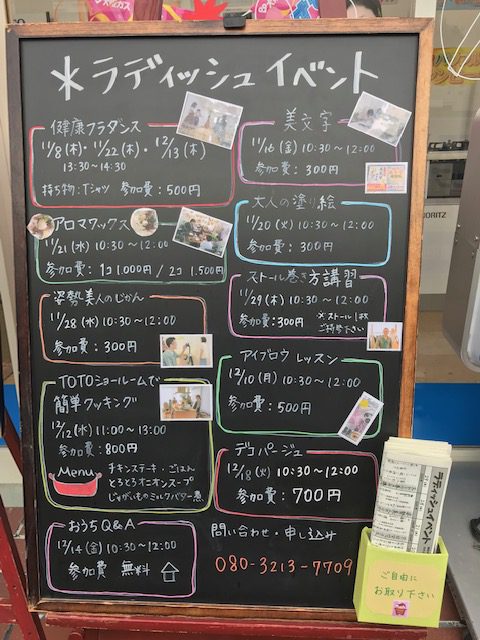 *ラディッシュイベント
健康フラダンス
11/8(木)・11/22(木)・12/13(木)
13:30～14:30
持ち物:Tシャツ 参加費:500円
美文字
11/16(金) 10:30～12:00
参加費:300円
アロマワックス
11/21(水) 10:30～12:00
参加費:1コ 1.000円/2コ 1.500円
大人の塗り絵
11/20(火) 10:30～12:00
参加費:300円
姿勢美人のじかん
11/28(水) 10:30～12:00
参加費:300円
ストール巻き方講習
11/29(木) 10:30～12:00
参加費:300円 ※ストール1枚
ご持参下さい
TOTOショールームで
簡単クッキング
12/12(水) 11:00～13:00
参加費:800円
Menu
チキンステーキ・ごはん
とろとろオニオンスープ
じゃがいものミルクバター煮
アイブロウ レッスン
12/10(月) 10:30～12:00
参加費:500円
デコパージュ
12/18(火) 10:30～12:00
参加費:700円
おうちQ&A
12/14(金) 10:30～12:00
参加費 無料
問い合わせ・申し込み
080-3213-7709
ラディッシュイベント
ご自由に
お取り下さい
NORITZ